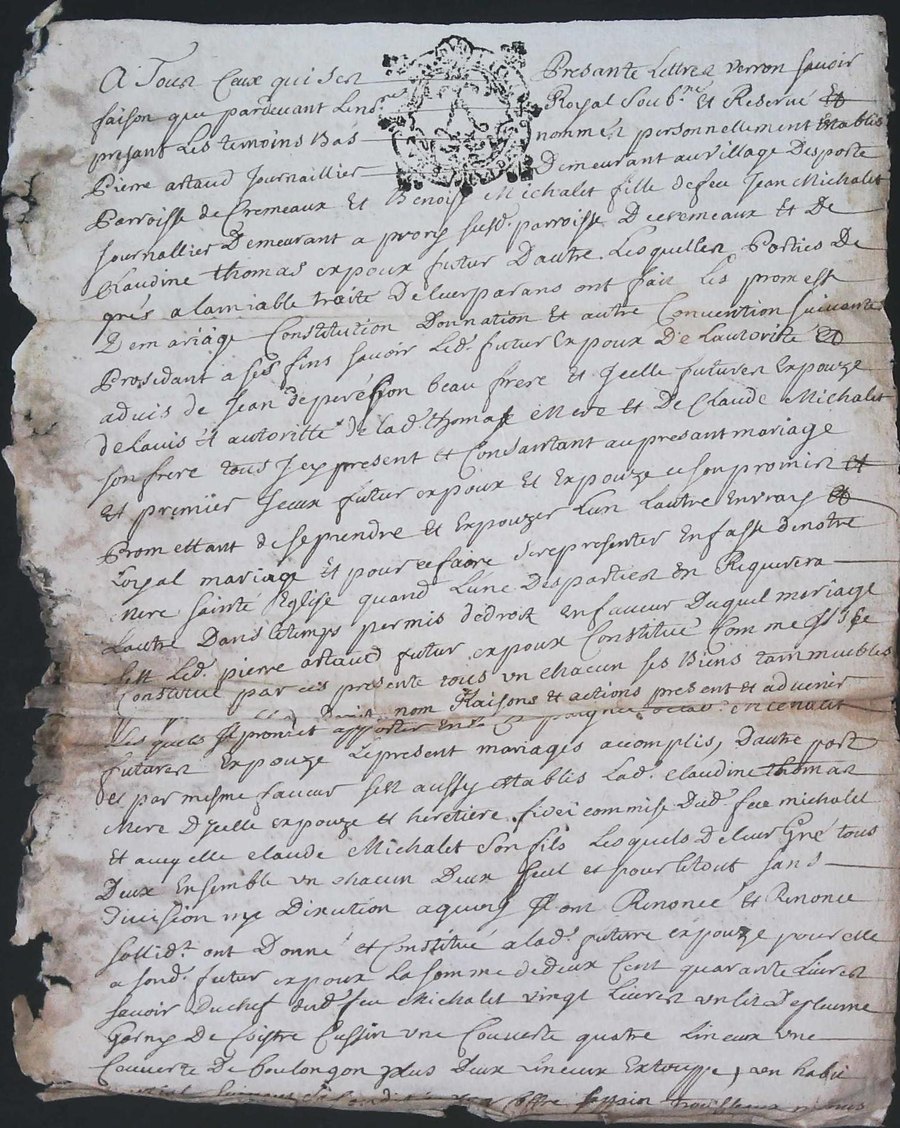 A Tous Ceux qui ses Presante Lettres verron savoir
faison que pardevant Le no.re Royal Soub.ne Et Reservé Et
presant Les temoins bas nommés personnellement Establis
Pierre artaud Journallier Demeurant au village Desporte
Parroisse de Cremeaux Et Benoiste Michalet fille defeu Jean Michalet
Journallier Demeurant a prong susd. parroisse Decremeaux Et De
Claudine thomas expoux futur D'autre Lesquelles Parties De
grés a Lamiable traité De leurparans ont fait Les promest
Demariage Constitution Donnation Et autre Convention suivante
Prosedant a ses fins savoir Led. futur Expoux De Lautorité Et
advis de Jean beau frere Et Jcelle future Expouze
de Lavis Et autoritté de lad. thomas Mere Et De Claude Michalet
son frere tous Jcy present Et Consantant au presant mariage
Et premier Jceux futur expoux Et Expouze ce son promis Et
Promettant de se prendre Et Expouzer Lun Lautre En vray Et
Loyal mariage Et pour ce faire se representer En fasse De notre
Mere sainte Eglise quand Lune Desparties En Requerera
Lautre Dans letemps permis dedroit Enfaveur Duquel mariage
sest Led. pierre artaud futur expoux Constitué Comme Jl se
Constitue par ces presente tous un chacun ses Biens tammeubles
nom Raisons et actions present et advenir
Les quels Jl promet apporter En la Compaignie de lad.
future Expouze Le present mariages acomplis, Dautre part
et par mesme faveur sest aussy Establis Lad. Claudine thomas
Mere D'ycelle expouze et heretiere fideicommise Dud. feu michalet
Et avecq elle Claude Michalet son fils Lesquels De leur Gré tous
Deux Ensemble un chacun Deux seul et pour letout sans
Division nye Dicution aquoy Jls ont Renoncé Et Renonce
sollid.t ont Donné Et Constitué a Lad. future expouze pour elle
a sond. futur expoux La somme dedeux Cent quarante Livres
savoir Duchef dud. feu Michalet vingt Livres un lit Deplume
Garny De Coistre Cussin une Couverte quatre Lineux une
Couverte De boulongon plus Deux Lineux Extouppe, un habit
coffre sappain